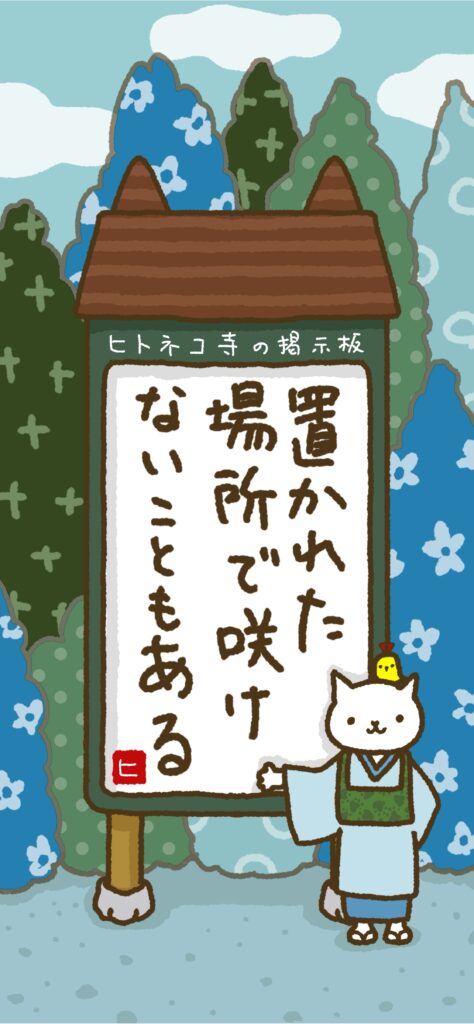 ヒトネコ寺の掲示板
置かれた
場所で咲け
ないこともある
ヒ